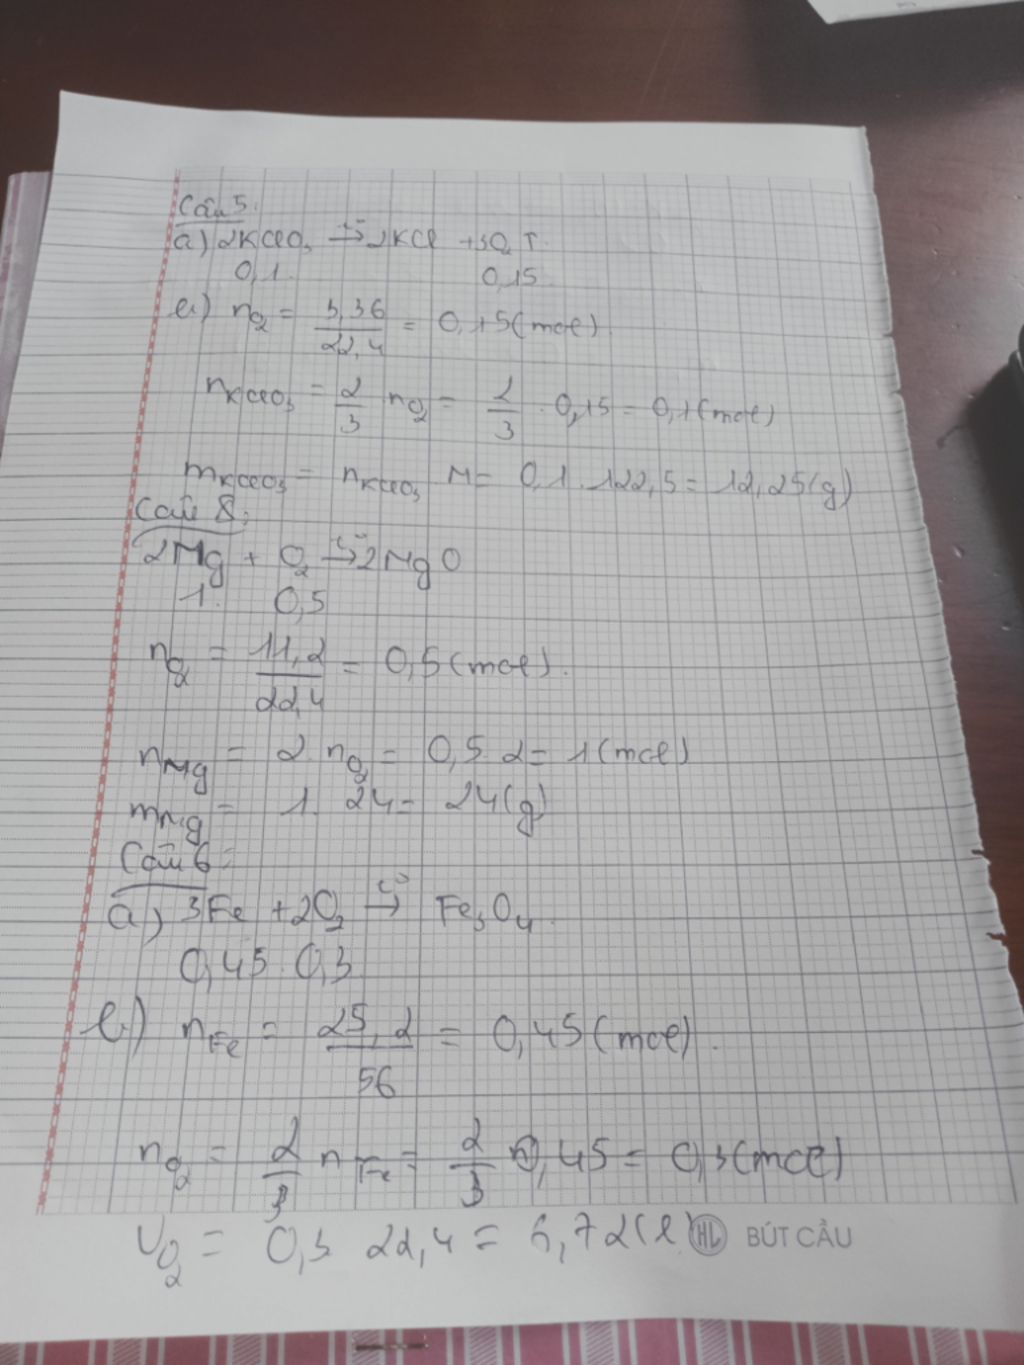 Câu 5:
a) 2KClO₃ →t° 2KCl + 3O₂ ↑
0,1 0,15
b) nO₂ = 3,36/22,4 = 0,15 (mol)
nKClO₃ = 2/3 nO₂ = 2/3 . 0,15 = 0,1 (mol)
mKClO₃ = nKClO₃ M = 0,1 . 122,5 = 12,25 (g)
Câu 8:
2Mg + O₂ →t° 2MgO
1 0,5
nO₂ = 11,2/22,4 = 0,5 (mol).
nMg = 2 nO₂ = 0,5 . 2 = 1 (mol)
mMg = 1 . 24 = 24 (g)
Câu 6:
a) 3Fe + 2O₂ →t° Fe₃O₄
0,45 0,3
b) nFe = 25,2/56 = 0,45 (mol).
nO₂ = 2/3 nFe = 2/3 0,45 = 0,3 (mol)
VO₂ = 0,3 22,4 = 6,72 (l)
HL BÚT CẦU